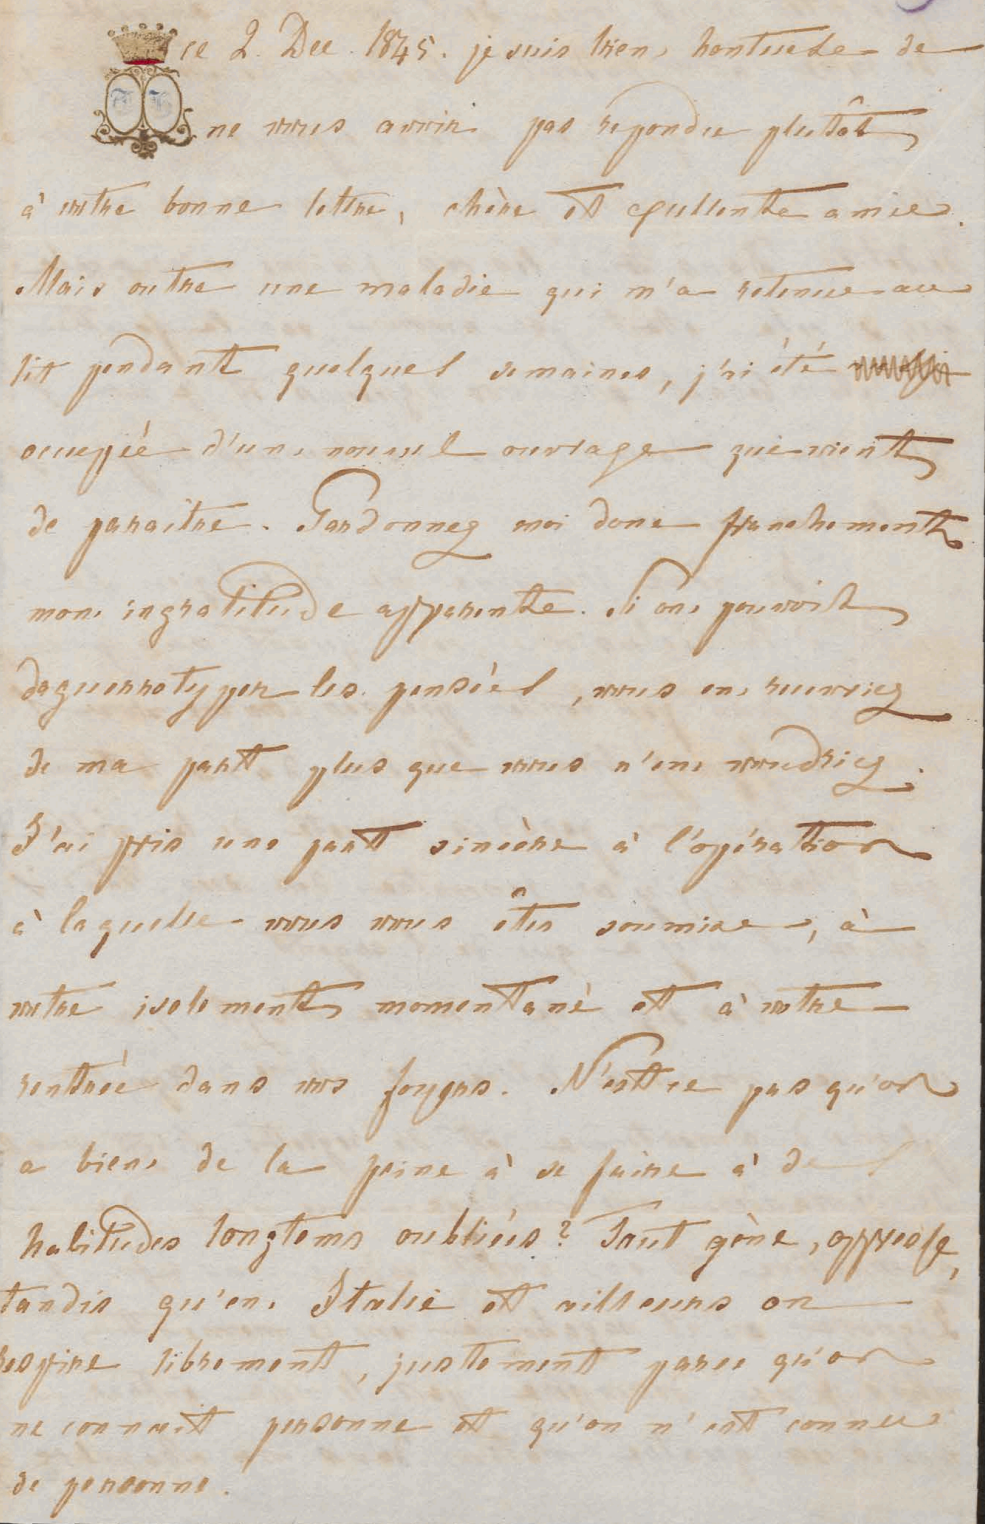 ce 2. Dec. 1845. je suis bien honteuse de
ne vous avoir pas repondu plutôt
à votre bonne lettre, chère et excellente amie.
Mais outre une maladie qui m'a retenue au
lit pendant quelques semaines, j'ai été
occupée d'un nouvel ouvrage qui vient
de paraitre. Pardonnez moi donc franchement
mon ingratitude apparente. Si on pouvoit
daguerrotyper les pensées, vous en recevriez
de ma part plus que vous n'en voudriez.
J'ai pris une part sincère à l'opération
à laquelle vous vous êtes soumise, à
votre isolement momentané et à votre
rentrée dans vos foyers. N'est ce pas qu'on
a bien de la peine à se faire à des
habitudes longtems oubliées? Tout gène, oppresse,
tandis qu'en Italie et ailleurs on
respire librement, justement parce qu'on
ne connait personne et qu'on n'est connue
de personne.